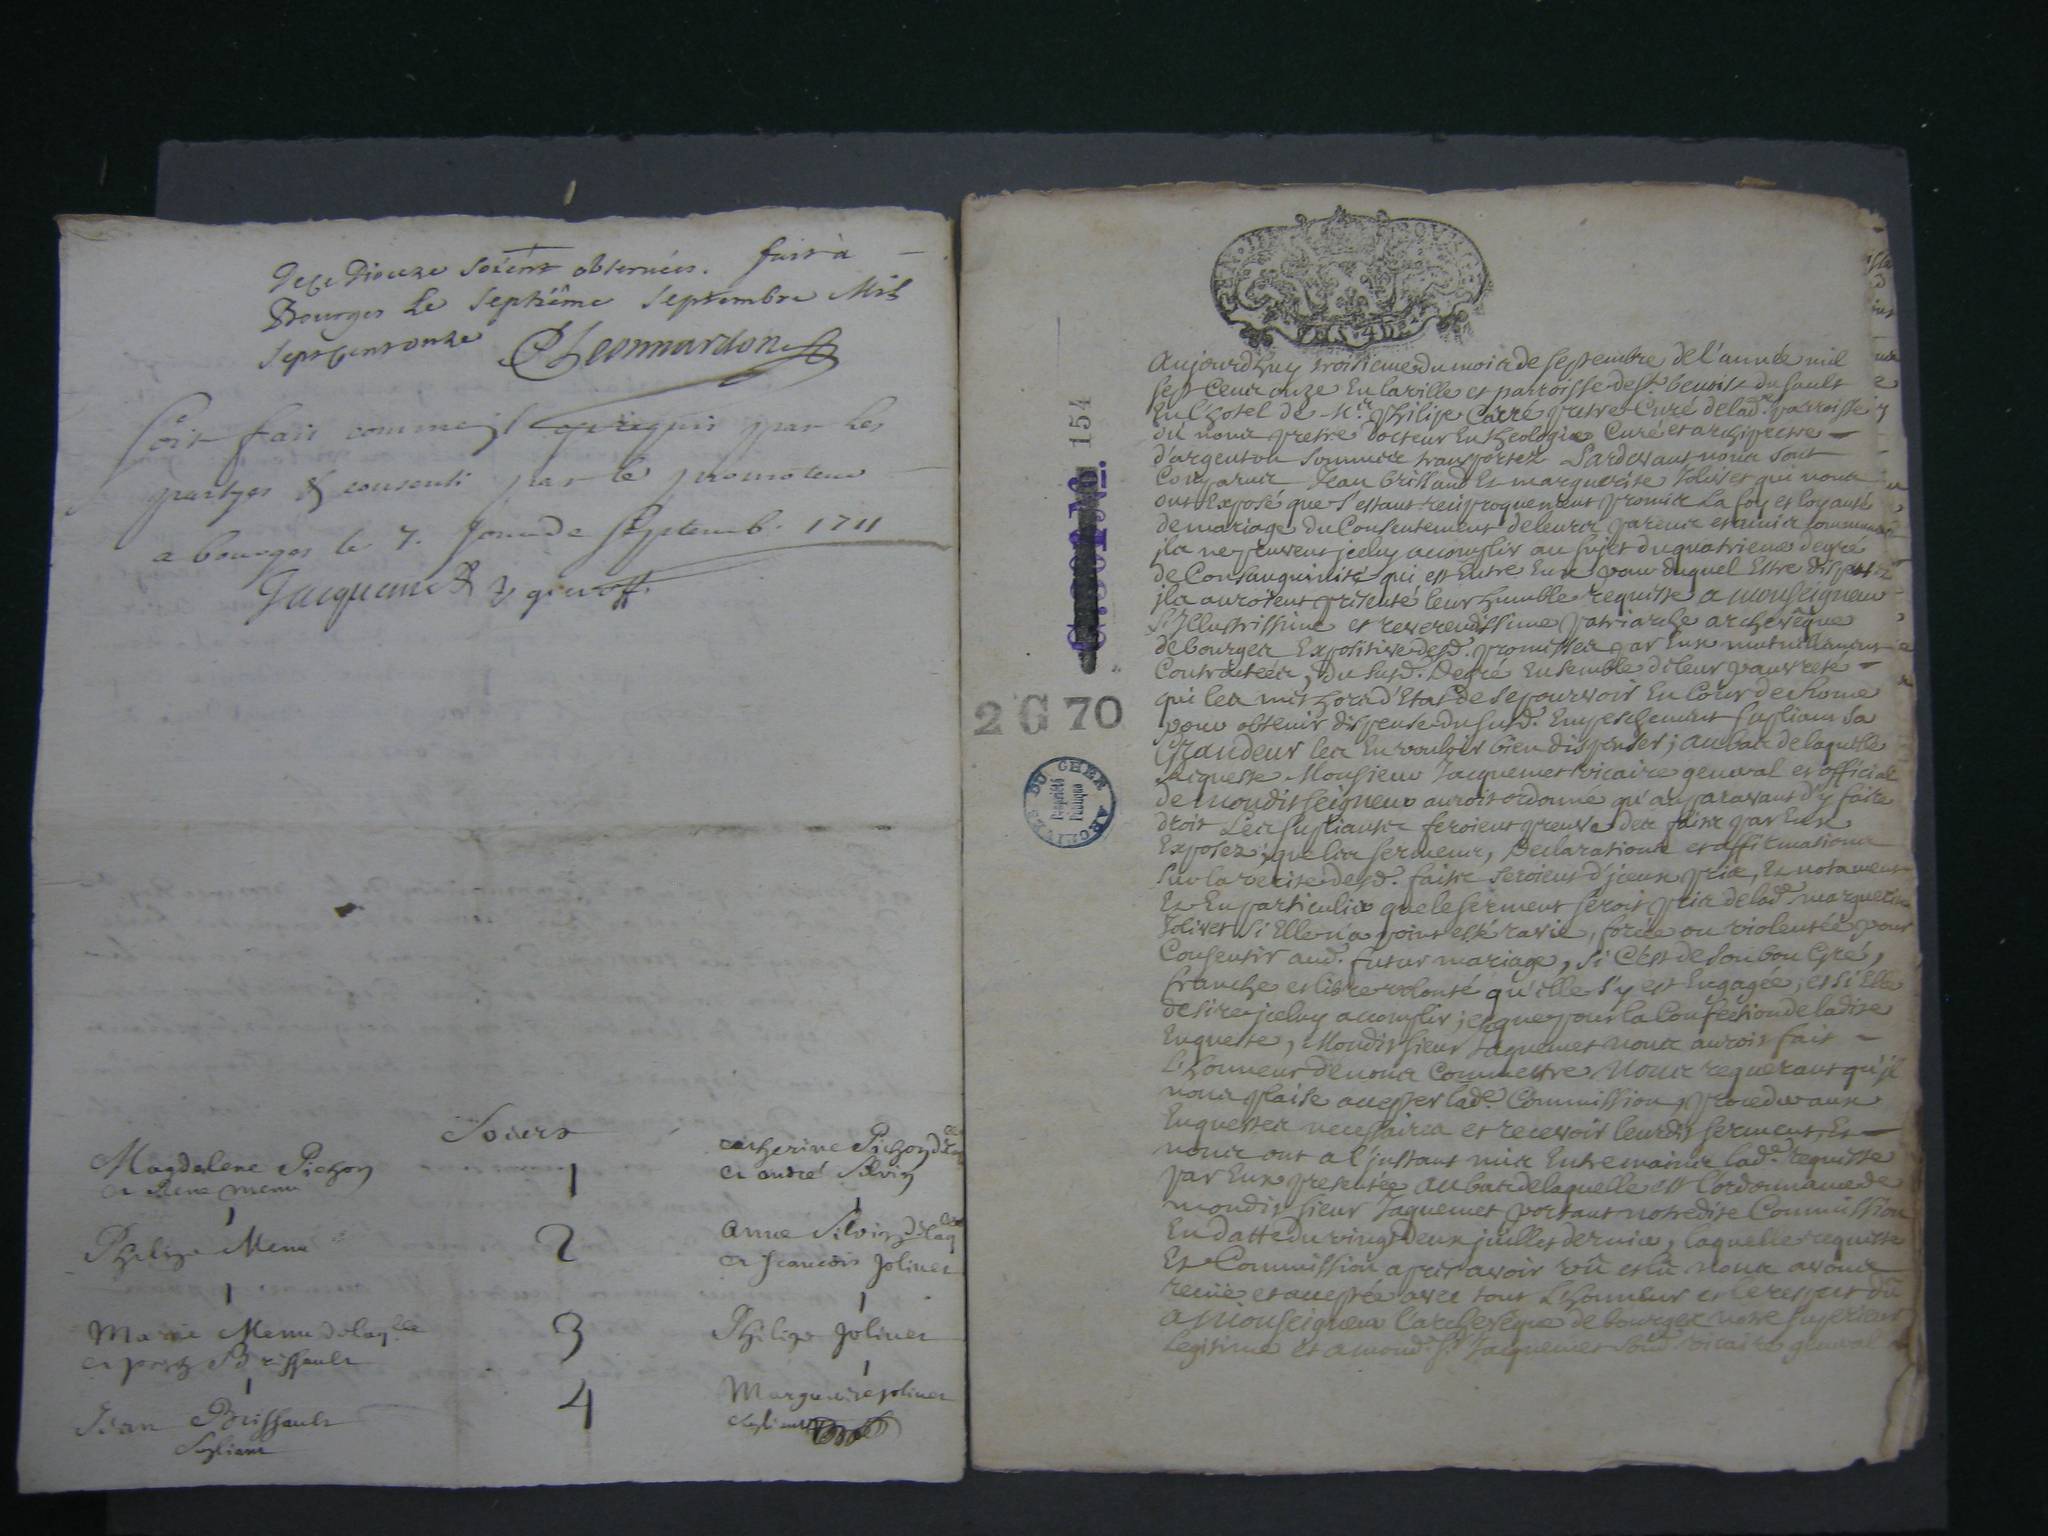 de ce Dioceze soient observées. fait à
Bourges le septiême septembre Mil
sept cent onze CLeonnardon
Soit fait comme il est requis par les
partyes & consenti par le promoteur
a bourges le 7. Jour de septemb. 1711
Jacquemet
Soeurs
Magdelene Pichon
et Rene menu
1
catherine Pichon
et andré Silvin
Philipe Menu
2
Anne Silvin de laq
et francois Jolivet
Marie Menu de laq.lle
et Brissault
3
Philipe Jolivet
Jean Brissault
Supliant
4
Marguerite Jolivet
Supliante
2 G 70
154
ARCHIVES DU CHER
Propriété
Publique
aujourdhuy troisieme du mois de septembre de l'année mil
sept cens onze En la ville et parroisse de st benoist du sault
En l'hotel de Mr. Philipe Carré prestre Curé de lade. parroisse
du nous prestre docteur En theologie Curé et archiprestre
d'argenton sommes transportez Pardevant nous sont
Comparus Jean brissaud Et marguerite Jolivet qui nous
ont Exposé que s'estant reciproquement promis la foy et loyauté
de mariage du Consentement de leurs parens et amis communs
ils ne peuvent iceluy acomplir au sujet du quatrieme degré
de Consanguinité qui est Entre Eux pour duquel Estre dispensez
ils auroient presenté leur humble requeste a monseigneur
L'Illustrissime et reverendissime patriarche archevêque
de bourges Expositive desd. promisses par Eux mutuellement
Contractées, du susd. Degré Ensemble de leur pauvreté
qui les met hors d'Etat de se pourvoir En Cour de Rome
pour obtenir dispense du susd. Empeschement supliant sa
Grandeur les En vouloir bien dispenser; au bas de laquelle
Requeste Monsieur Jacquemet vicaire general et official
de mondit seigneur auroit ordonné qu'auparavant d'y faire
droit Les supliants feroient preuve des faits par Eux
Exposez; que les sermens, Declarations et affirmations
sur la verité desd. faits seroient d'iceux pris, Et notament
Et En particulier que le serment seroit pris de lade. marguerite
Jolivet si Elle n'a point esté ravie, forcée ou violentée pour
Consentir aud. futur mariage, si C'est de son bon Gré,
franche et libre volonté qu'elle s'y est Engagée, et si Elle
desire iceluy acomplir; et que pour la Confection de ladite
Enqueste, Mondit sieur Jaquemet nous auroit fait
L'honneur de nous Commettre Nous requerant qu'il
nous plaise accepter lade. Commission, proceder aux
Enquestes necessaires et recevoir leurdit serment, Et
nous ont a l'instant mis Entre mains lade. requeste
par Eux presentée au bas de laquelle est l'ordonnance de
mondit sieur Jaquemet portant notredite Commission
En datte du vingt deux juillet dernier, laquelle requeste
Et Commission apres avoir vû et lû nous avons
receüe et acceptée avec tout L'honneur et le respect dû
a Monseigneur l'archevêque de bourges notre superieur
legitime et a mond. sr. Jaquemet sond. vicaire general